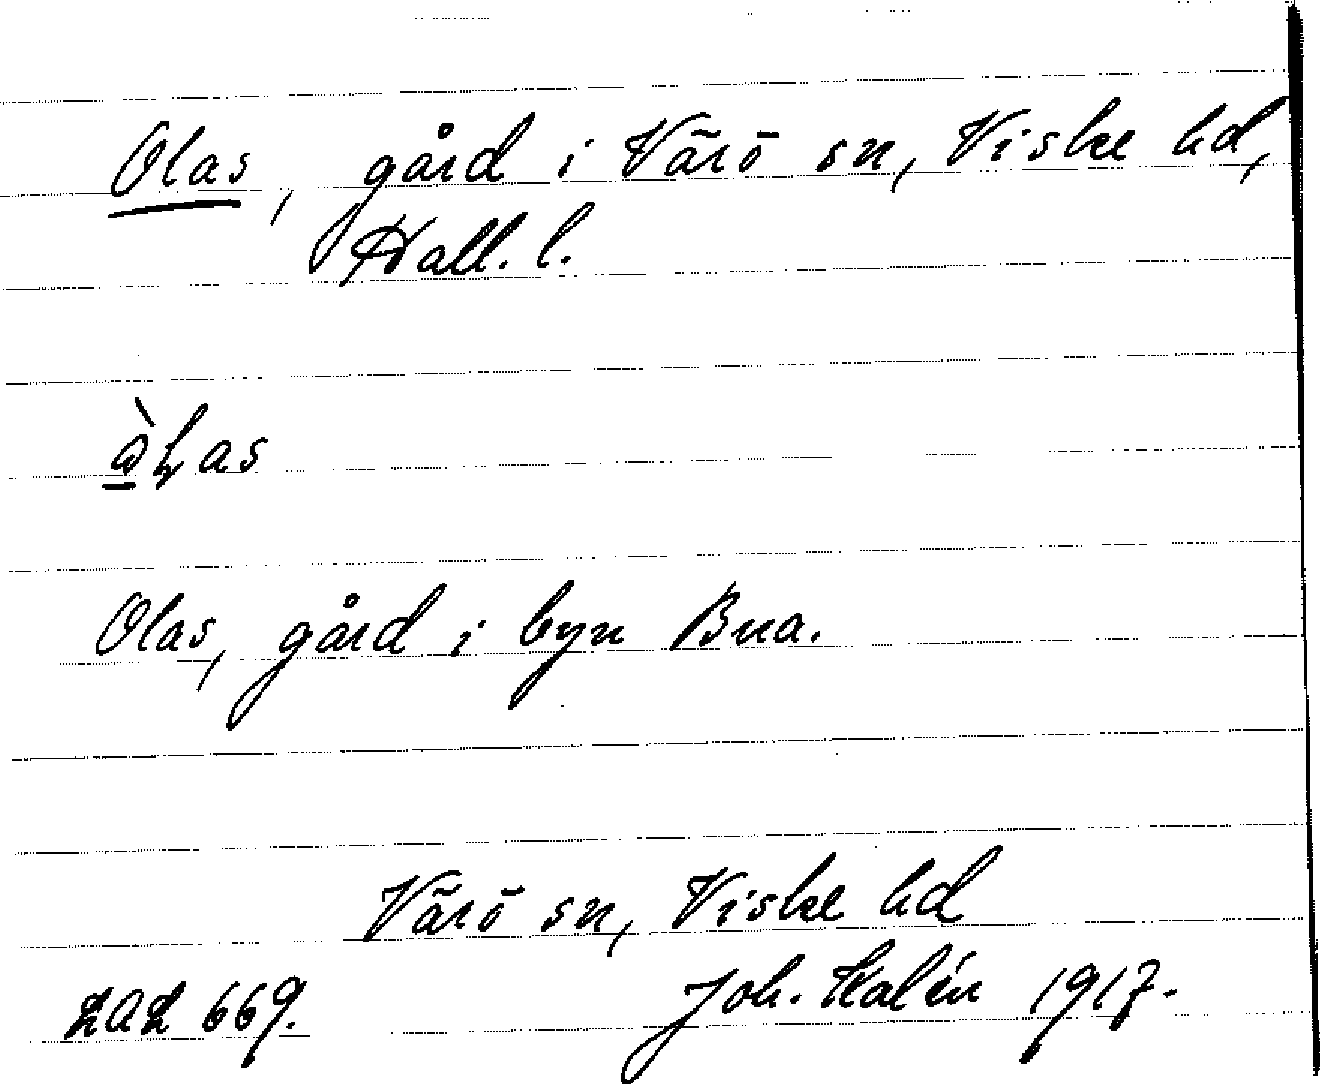 Olas, gård i Värö sn, Viske hd,
Hall. l.
Olas, gård i byn Bua.
Värö sn, Viske hd
LAL 669. Joh. Kalén 1917.